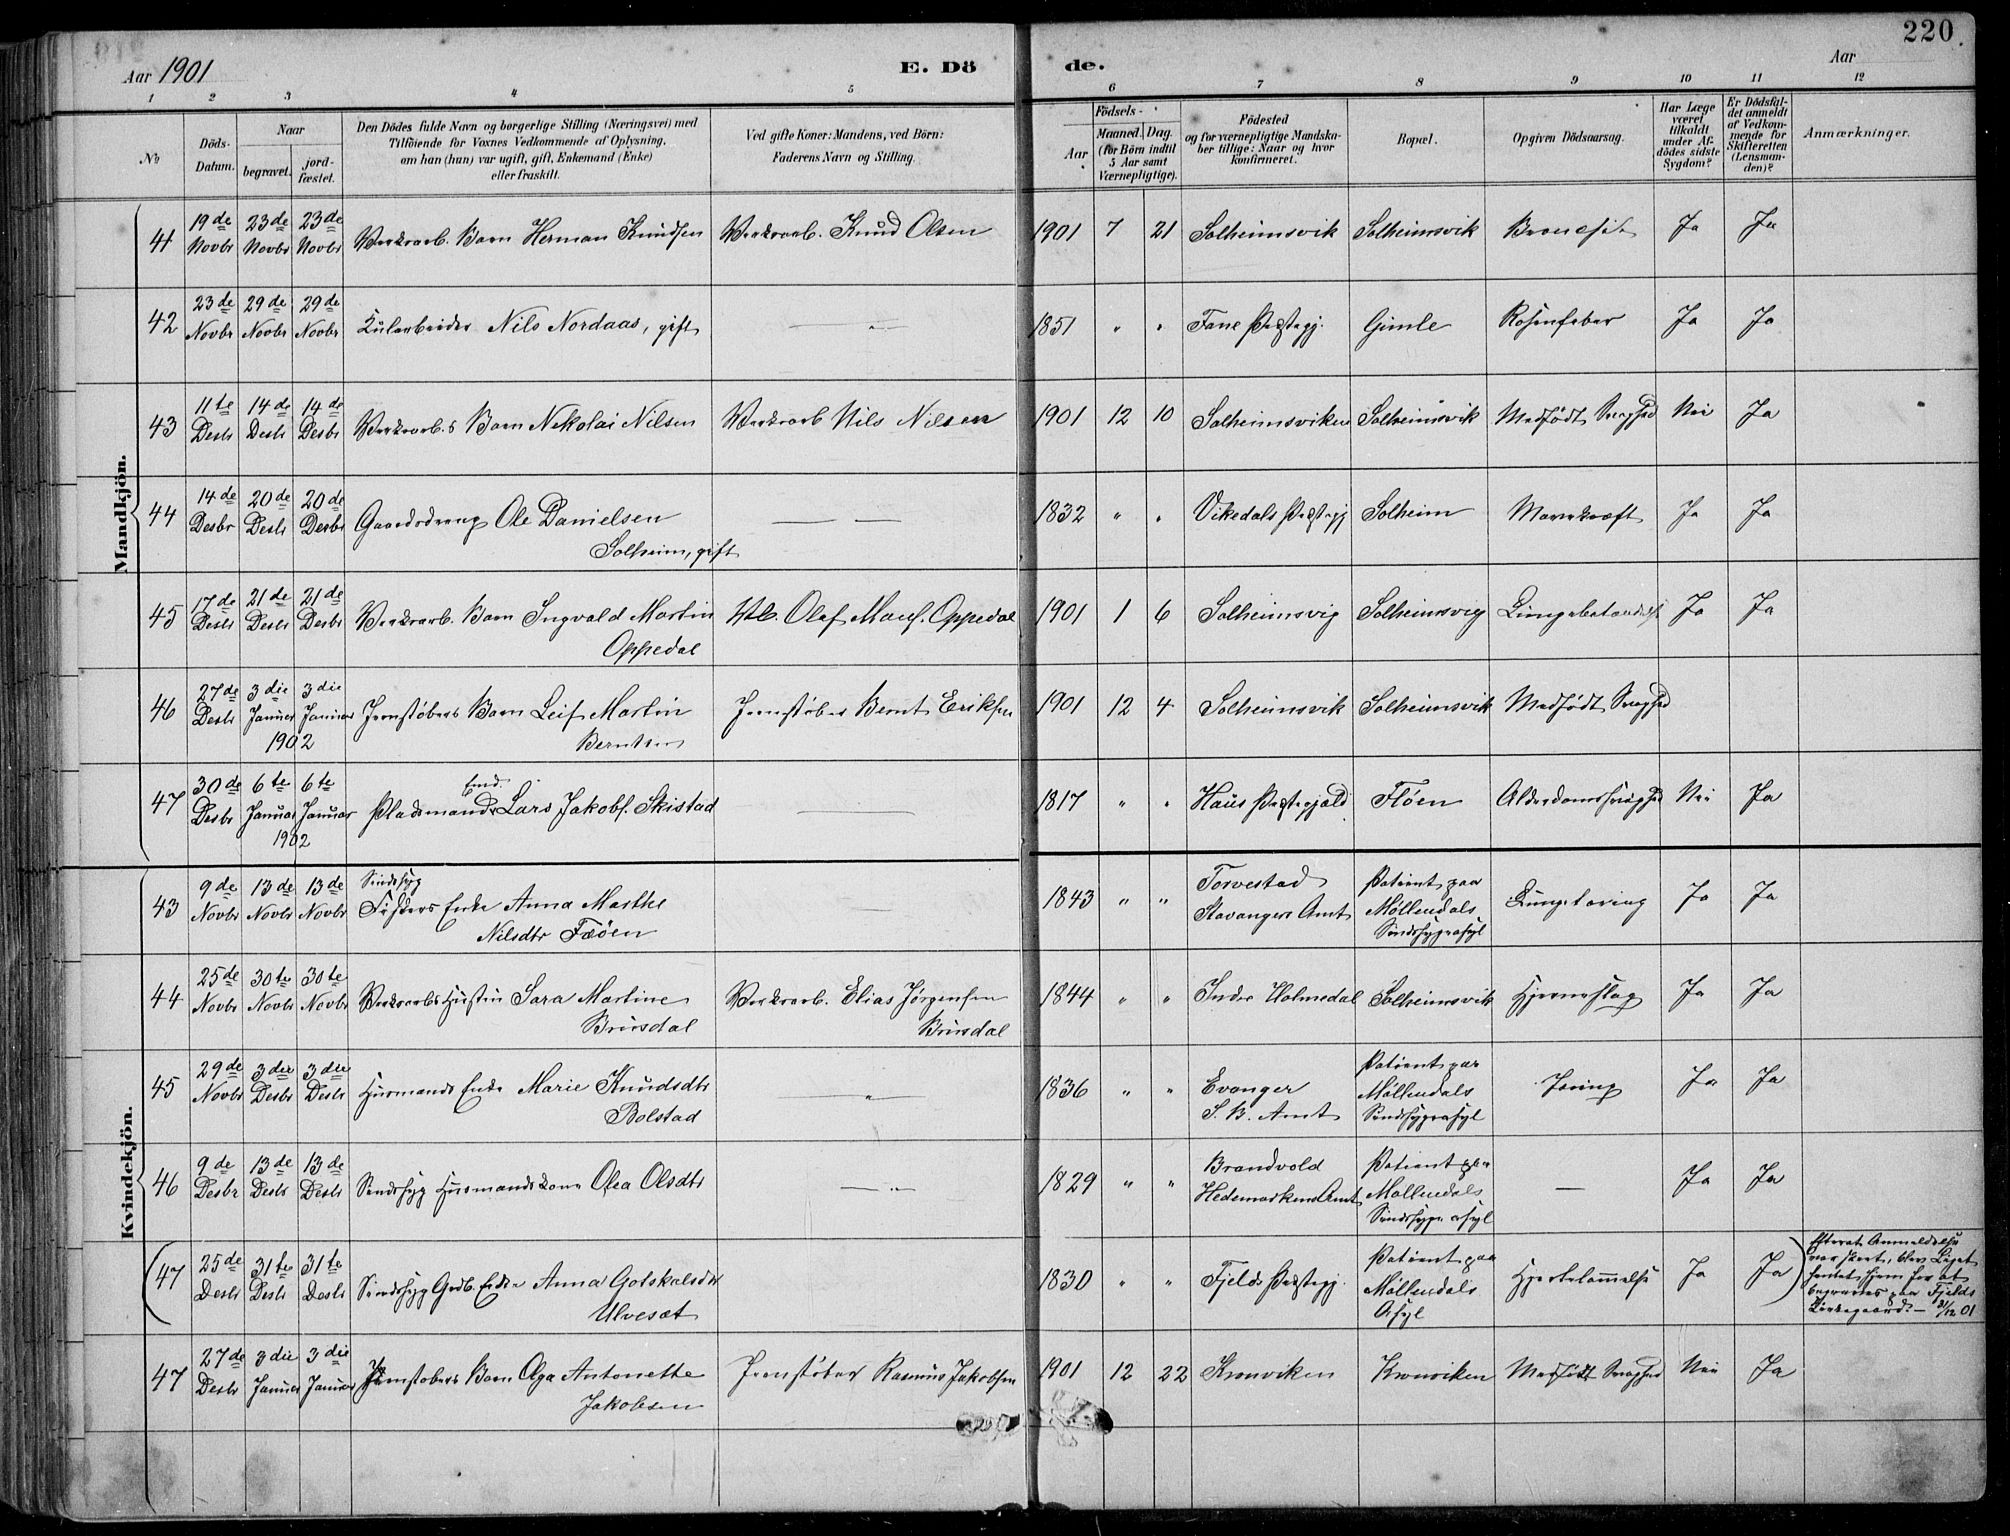 220.
Aar 1901
E. Dö
de.
Aar
1 2 3 4 5 6 7 8 9 10 11 12
No
Döds-
Datum.
Naar
begravet.
jord-
fæstet.
Den Dödes fulde Navn og borgerlige Stilling (Næringsvei) med
Tilföiende for Voxnes Vedkommende af Oplysning,
om han (hun) var ugift, gift, Enkemand (Enke)
eller fraskilt.
Ved gifte Koner: Mandens, ved Börn:
Faderens Navn og Stilling.
Födsels-
Aar
Maaned. Dag.
(for Börn indtil
5 Aar samt
Værnepligtige).
Födested
og for værnepligtige Mandska-
ber tillige: Naar og hvor
konfirmeret.
Bopæl.
Opgiven Dödsaarsag.
Har Læge
været
tilkaldt
under Af-
dödes sidste
Sygdom?
Er Dödsfal-
det anmeldt
af Vedkom-
mende for
Skifteretten
(Lensman-
den)?
Anmærkninger.
Mandkjön.
41 19de Novbr 23de Novbr 23de Novbr Verksarb. Barn Herman Knudsen Verksarb. Knud Olsen 1901 7 21 Solheimsvik Solheimsvik Ja Ja
42 23de Novbr 29de Novbr 29de Novbr Nils Nordaas, gift — " — 1851 " " Fane Præstegj. Gimle Rosenfeber Ja Ja
43 11te Desbr 14de Desbr 14de Desbr Verksarb.s Barn Nikolai Nilsen Verksarb Nils Nilsen 1901 12 10 Solheimsviken Solheimsvik Medfödt Svaghed Nei Ja
44 14de Desbr 20de Desbr 20de Desbr Gaardsdreng Ole Danielsen
Solheim, gift — — 1832 " " Vikedals Præstegj Solheim Mavekræft Ja Ja
45 17de Desbr 21de Desbr 21de Desbr Verksarb. Barn Ingvald Martin
Oppedal Olaf Oppedal 1901 1 6 Solheimsvig Solheimsvig Lungebetændelse Ja Ja
46 27de Desbr 3die Januar 3die Januar
1902 Jernstøbers Barn Leif Martin
Berntsen Jernstøber Bernt Eriksen 1901 12 4 Solheimsvik Solheimsvik Medfödt Svaghed
47 30de Desbr 6te Januar 6te Januar
1902 Pladsmand Lars Jakobs. Skistad — 1817 " " Haus Præstegjæld Flöen Alderdomssvaghed Nei Ja
Kvindekjön.
43 9de Novbr 13de Novbr 13de Novbr Sindssyg
Fiskers Enke Anna Marthe
Nilsdtr Fæöen — 1843 " " Torvestad
Stavangers Amt Patient paa
Møllendals
Sindssygeasyl Lungetæring Ja Ja
44 25de Novbr 30te Novbr 30te Novbr Verksarbs Hustru Sara Martine
Brusdal Verksarb. Elias Jørgensen
Brusdal 1844 " " Indre Holmedal Solheimsvik Hjerneslag Ja Ja
45 29de Novbr 3die Desbr 3die Desbr Husmands Enke Marie Knudsdtr
Bolstad — " — 1836 " " Evanger
S. B. Amt Patient paa
Møllendals
Sindssygeasyl Tæring Ja Ja
46 9de Desbr 13de Desbr 13de Desbr Sindssyg Husmandskone Olea Olsdtr — " — 1829 " " Brandvold
Hedemarkens Amt Patient paa
Møllendals
Sindssyge asyl — Ja Ja
(47 25de Desbr 31te Desbr 31te Desbr Sindssyg Grdb. Enke Anna Gotskalsdtr
Ulveset 1830 " " Fjelds Præstegj. Patient paa
Møllendals
Asyl Hjertelammelse Ja Ja) Efterat Anmeldelse
var skeet, blev Liget
hentet hjem for at
begraves paa Fjelds
Kirkegaard. — 31/12 01
47 27de Desbr 3die Januar 3die Januar Jernstøbers Barn Olga Antonette
Jakobsen Jernstøber Rasmus Jakobsen 1901 12 22 Kronviken Kronviken Medfödt Svaghed Nei Ja